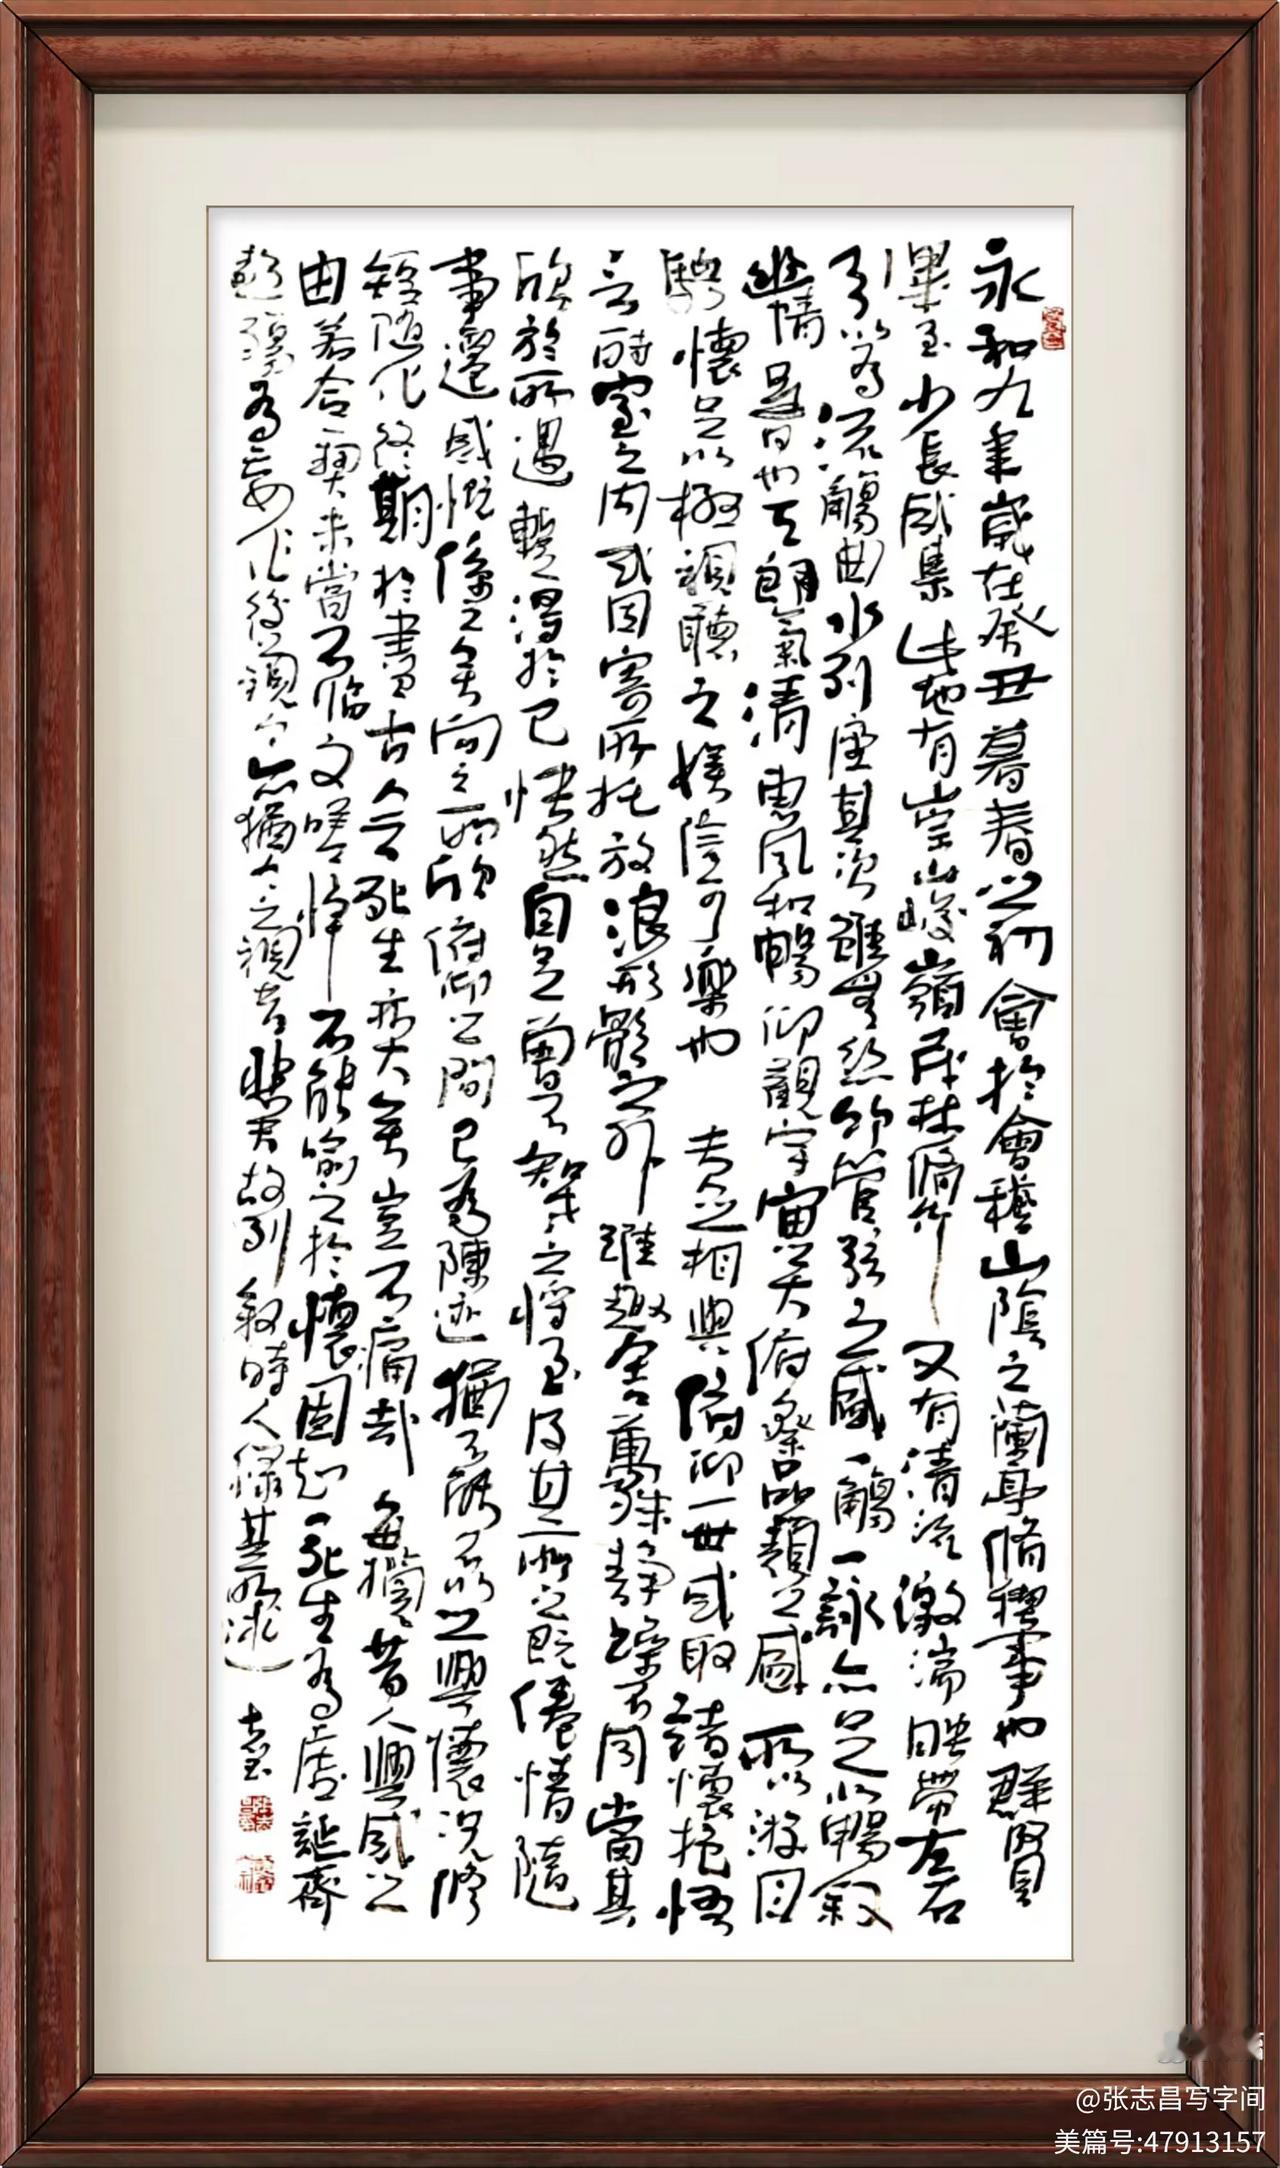 永和九年歲在癸丑暮春之初會於會稽山陰之蘭亭脩禊事也群賢
畢至少長咸集此地有崇山峻嶺茂林脩竹又有清流激湍映帶左右
引以為流觴曲水列座其次雖無絲竹管弦之盛一觴一詠亦足以暢敘
幽情是日也天朗氣清惠風和暢仰觀宇宙之大俯察品類之盛所以游目
騁懷足以極視聽之娛信可樂也 夫人之相與俯仰一世或取諸懷抱悟
言時室之内或因寄所托放浪形骸之外雖趣舍萬殊靜躁不同當其
欣於所遇暫得於己怏然自足曾不知老之將至及其所之既倦情隨
事遷感慨係之矣向之所欣俯仰之間已為陳迹猶不能不以之興懷況脩
短隨化終期於盡古人云死生亦大矣豈不痛哉 每攬昔人興感之
由若合一契未嘗不臨文嗟悼不能喻之於懷固知一死生為虛誕齊
彭殤為妄作後之視今亦猶今之視昔悲夫故列敘時人錄其所述
@张志昌写字间
美篇号:47913157